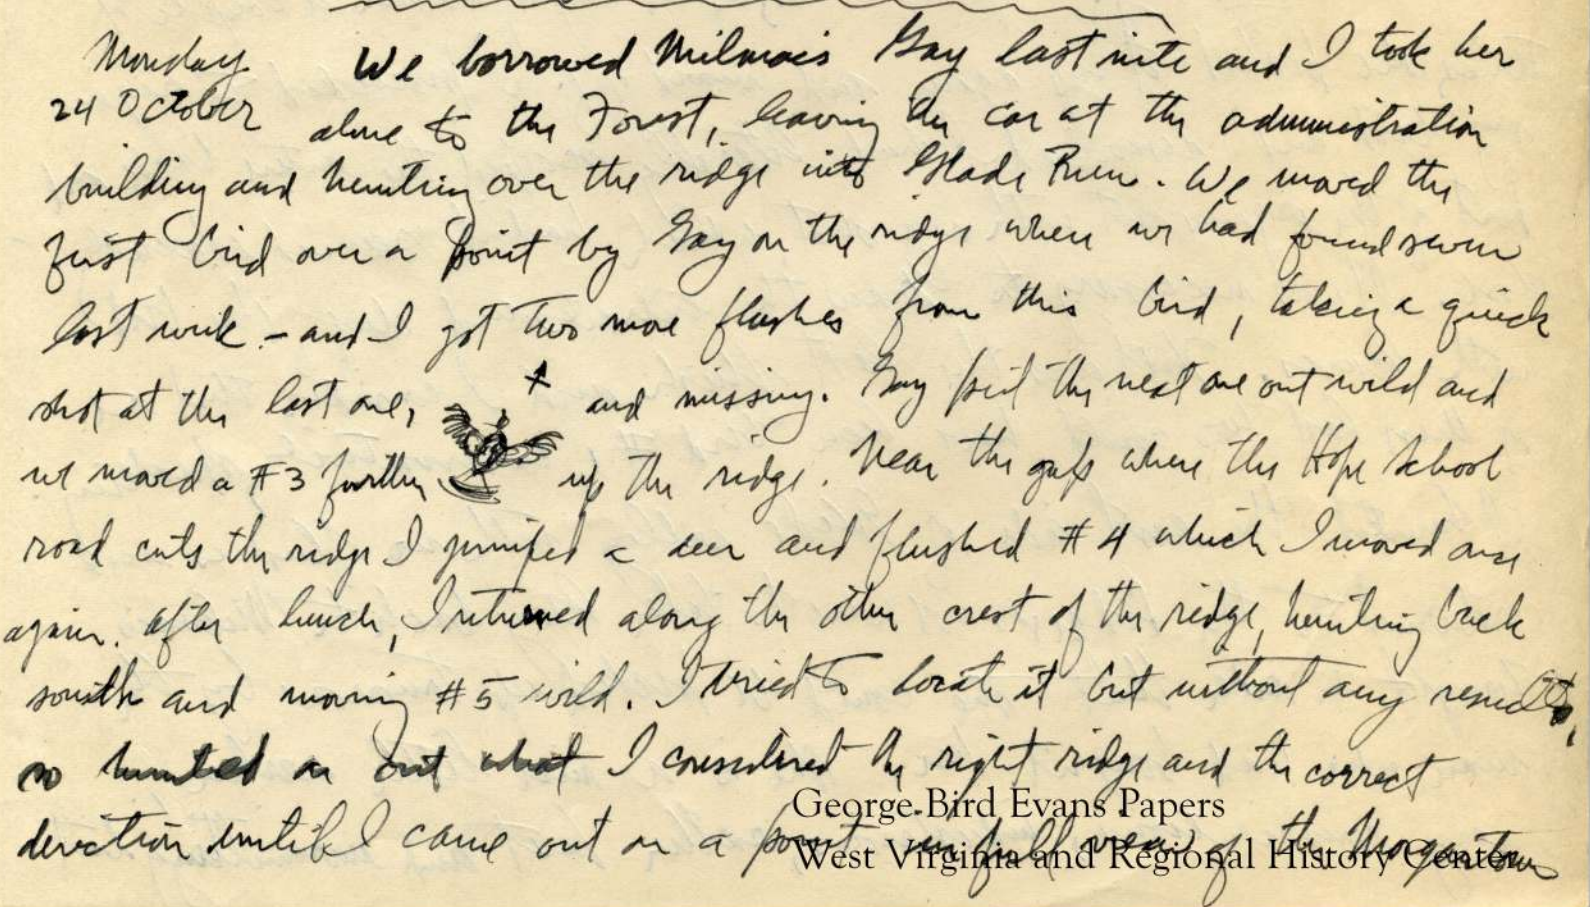 Monday We borrowed Gay last nite and I took her
24 October alone to the Forest, leaving the car at the administration
building and hunting over the ridge into Glade Run. We moved the
first bird over a point by Gay on the ridge where we had found seven
last week - and I got two more flushes from this bird, taking a quick
shot at the last one, and missing. Gay put the next one out wild and
we moved a #3 further up the ridge. Near the gap where the Hope School
road cuts the ridge I jumped a deer and flushed #4 which I moved once
again. After lunch, I returned along the other crest of the ridge, hunting back
south and moving #5 wild. I tried to locate it but without any results,
so hunted on out what I considered the right ridge and the correct
direction until I came out on a point in full view of the Morgantown
George Bird Evans Papers
West Virginia and Regional History Center